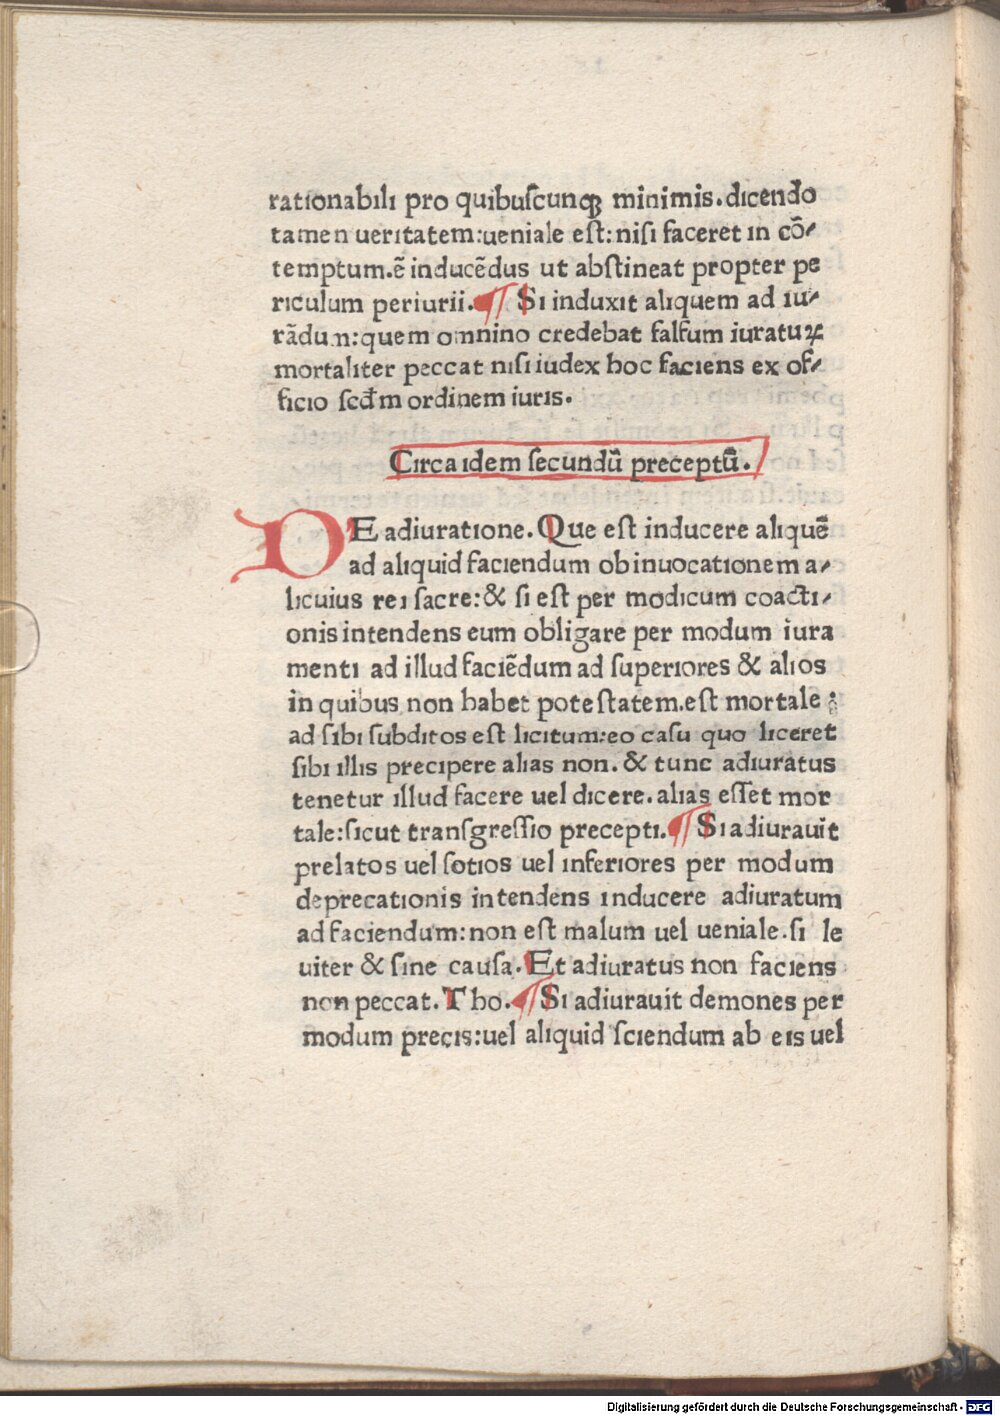 rationabili pro quibuſcunqꝫ minimis.dicendo
tamen ueritatem:ueniale eſt:niſi faceret in cõ⸗
temptum.ẽ inducẽdus ut abſtineat propter pe
riculum periurii.¶ Si induxit aliquem ad iu⸗
rãdum:quem omnino credebat falſum iuraturꝫ
mortaliter peccat niſi iudex hoc faciens ex of⸗
ficio ſcđm ordinem iuris.
Circa idem ſecundũ preceptũ.
DE adiuratione. Que eſt inducere aliquẽ
ad aliquid faciendum ob inuocationem a⸗
licuius rei ſacre:& ſi eſt per modicum coacti⸗
onis intendens eum obligare per modum iura
menti ad illud faciẽdum ad ſuperiores & alios
in quibus non habet poteſtatem.eſt mortale :
ad ſibi ſubditos eſt licitum:eo caſu quo liceret
ſibi illis precipere alias non. & tunc adiuratus
tenetur illud facere uel dicere.alias eſſet mor
tale:ſicut tranſgreſſio precepti.¶ Si adiurauit
prelatos uel ſotios uel inferiores per modum
deprecationis intendens inducere adiuratum
ad faciendum:non eſt malum uel ueniale.ſi le
uiter & ſine cauſa. Et adiuratus non faciens
non peccat. Tho.¶ Si adiurauit demones per
modum precis:uel aliquid ſciendum ab eis uel
Digitalisierung gefördert durch die Deutsche Forschungsgemeinschaft - DFG